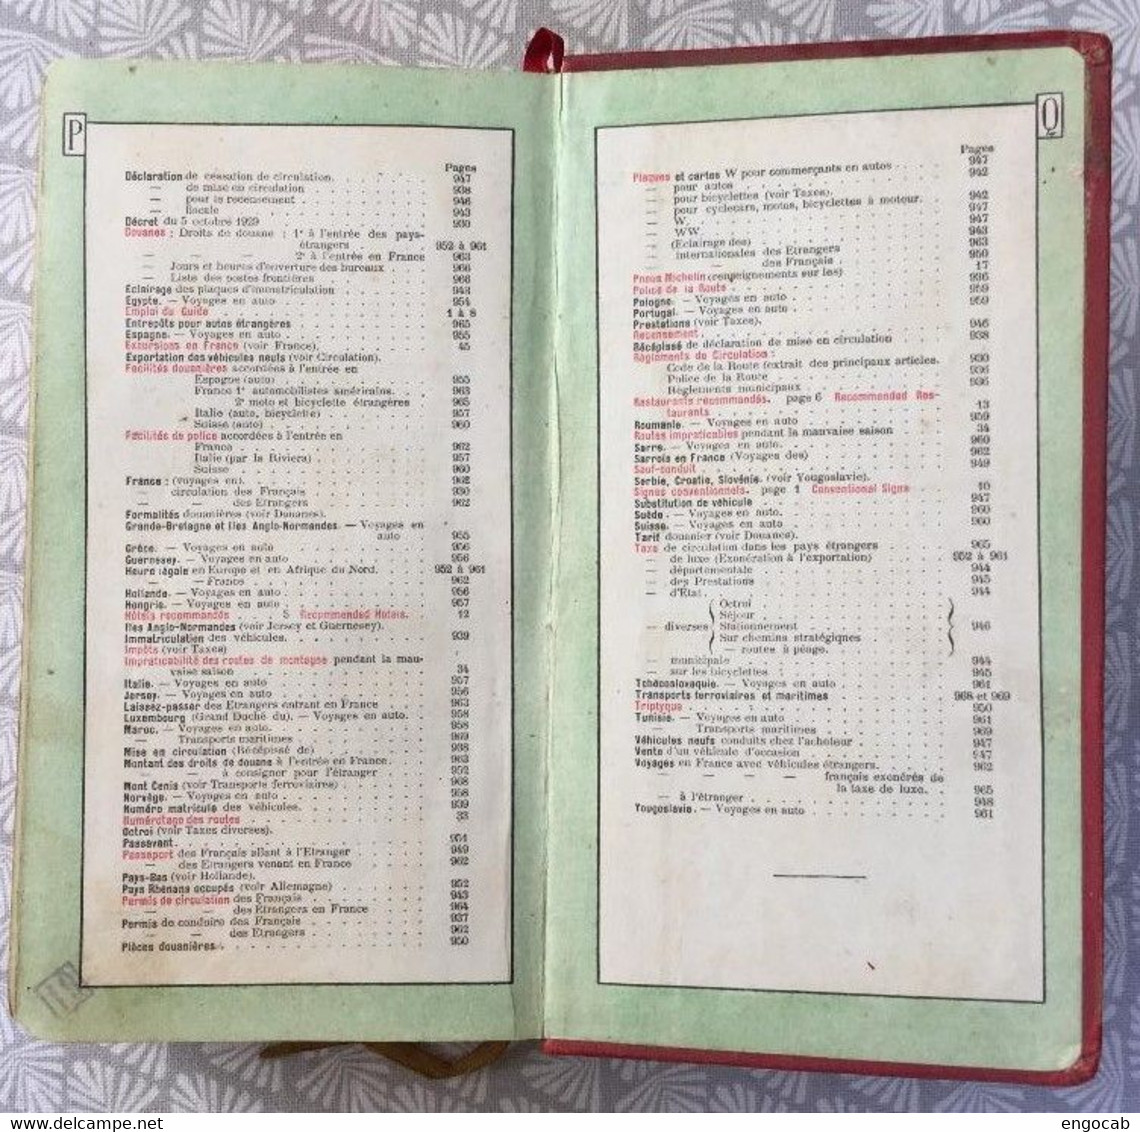 P
Pages
Déclaration de cessation de circulation. 947
— de mise en circulation 938
— pour le recensement 946
— fiscale 943
Décret du 5 octobre 1929 930
Douanes : Droits de douane : 1° à l'entrée des pays
étrangers 952 à 961
— — 2° à l'entrée en France 963
— Jours et heures d'ouverture des bureaux 966
— Liste des postes frontières 966
Eclairage des plaques d'immatriculation 943
Egypte. — Voyages en auto 954
Emploi du Guide 1 à 8
Entrepôts pour autos étrangères 965
Espagne. — Voyages en auto 955
Excursions en France (voir France). 45
Exportation des véhicules neufs (voir Circulation).
Facilités douanières accordées à l'entrée en
Espagne (auto) 955
France 1° automobilistes américains. 963
2° moto et bicyclette étrangères 965
Italie (auto, bicyclette) 957
Suisse (auto) 960
Facilités de police accordées à l'entrée en
France 962
Italie (par la Riviera) 957
Suisse 960
France : (voyages en). 962
— circulation des Français 930
— des Etrangers 962
Formalités douanières (voir Douanes).
Grande-Bretagne et Iles Anglo-Normandes. — Voyages en
auto 955
Grèce. — Voyages en auto 956
Guernesey. — Voyages en auto 956
Heure légale en Europe et en Afrique du Nord. 952 à 961
— — France 962
Hollande. — Voyages en auto 956
Hongrie. — Voyages en auto 957
Hôtels recommandés 5 Recommended Hotels. 12
Iles Anglo-Normandes (voir Jersey et Guernesey).
Immatriculation des véhicules. 939
Impôts (voir Taxes)
Impraticabilité des routes de montagne pendant la mau-
vaise saison 34
Italie. — Voyages en auto 957
Jersey. — Voyages en auto 956
Laissez-passer des Etrangers entrant en France 963
Luxembourg (Grand Duché du). — Voyages en auto. 958
Maroc. — Voyages en auto. 958
— Transports maritimes 969
Mise en circulation (Récépissé de) 938
Montant des droits de douane à l'entrée en France. 963
— — à consigner pour l'étranger 952
Mont Cenis (voir Transports ferroviaires) 968
Norvège. — Voyages en auto 958
Numéro matricule des véhicules. 939
Numérotage des routes 33
Octroi (voir Taxes diverses).
Passavant. 951
Passeport des Français allant à l'Etranger 949
— des Etrangers venant en France 962
Pays-Bas (voir Hollande).
Pays Rhénans occupés (voir Allemagne) 952
Permis de circulation des Français 943
— — des Etrangers en France 964
Permis de conduire des Français 937
— — des Etrangers 962
Pièces douanières. 950
Q
Pages
Plaques et cartes W pour commerçants en autos 947
— pour autos 942
— pour bicyclettes (voir Taxes).
— pour cyclecars, motos, bicyclettes à moteur. 942
— W. 947
— WW. 947
— (Eclairage des) 943
— internationales des Etrangers 963
— — des Français 950
Pneus Michelin (renseignements sur les) 17
Police de la Route 936
Pologne. — Voyages en auto 959
Portugal. — Voyages en auto 959
Prestations (voir Taxes).
Recensement. 946
Récépissé de déclaration de mise en circulation 938
Règlements de Circulation :
Code de la Route (extrait des principaux articles. 930
Police de la Route 936
Règlements municipaux 936
Restaurants recommandés. page 6 Recommended Res-
taurants 13
Roumanie. — Voyages en auto 959
Routes impraticables pendant la mauvaise saison 34
Sarre. — Voyages en auto. 960
Sarrois en France (Voyages des) 962
Sauf-conduit 949
Serbie, Croatie, Slovénie. (voir Yougoslavie).
Signes conventionnels. page 1 Conventional Signs 10
Substitution de véhicule 947
Suède. — Voyages en auto. 960
Suisse. — Voyages en auto 960
Tarif douanier (voir Douanes).
Taxe de circulation dans les pays étrangers 965
— de luxe (Exonération à l'exportation) 952 à 961
— départementale 944
— des Prestations 945
— d'Etat 944
Octroi
Séjour
— diverses Stationnement 946
Sur chemins stratégiques
— routes à péage.
— municipale 944
— sur les bicyclettes 945
Tchécoslovaquie. — Voyages en auto 961
Transports ferroviaires et maritimes 968 et 969
Triptyque 950
Tunisie. — Voyages en auto 961
— Transports maritimes 969
Véhicules neufs conduits chez l'acheteur 947
Vente d'un véhicule d'occasion 947
Voyages en France avec véhicules étrangers. 962
— — — — français exonérés de
la taxe de luxe. 965
— à l'étranger 948
Yougoslavie. — Voyages en auto 961
www.delcampe.net
engocab